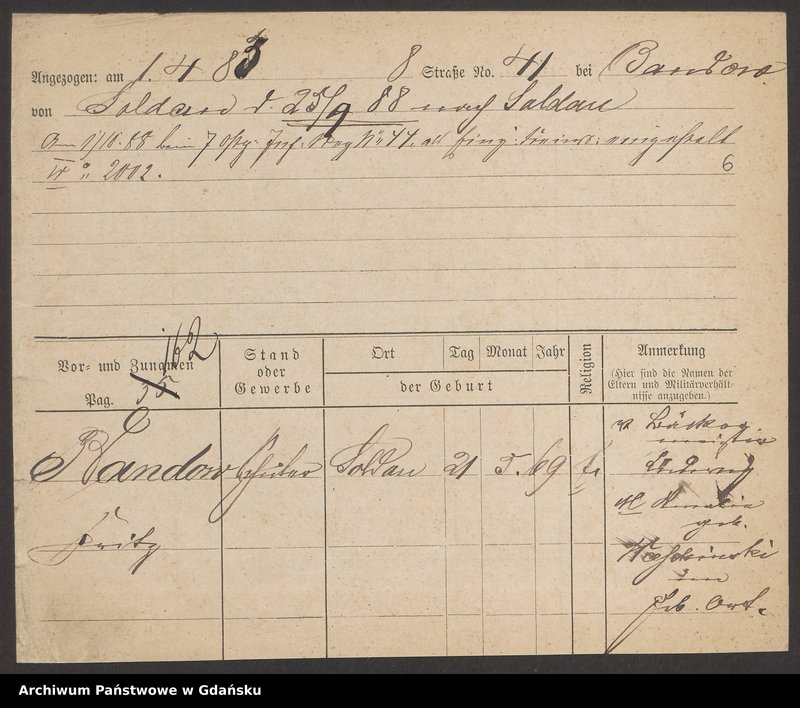 Angezogen: am 1. 4 83 8 Straße No. 41 bei Bandow
von Soldau d. 25/9 88 nach Soldau
Am 1/10. 88 beim 7 Ostp. Inf. Reg No 44. als angestelt
IV 2002. 6
162
Vor- und Zunamen
Pag. 35
Stand
oder
Gewerbe
Ort Tag Monat Jahr
der Geburt
Religion
Anmerkung
(Hier sind die Namen der
Eltern und Militärverhält-
nisse anzugeben.)
Bandow Schüler Soldau 21 5. 69
Fritz
v Bäcker
meister
Ludwig
M Amalia
geb.
Geb. Ort.
Archiwum Państwowe w Gdańsku